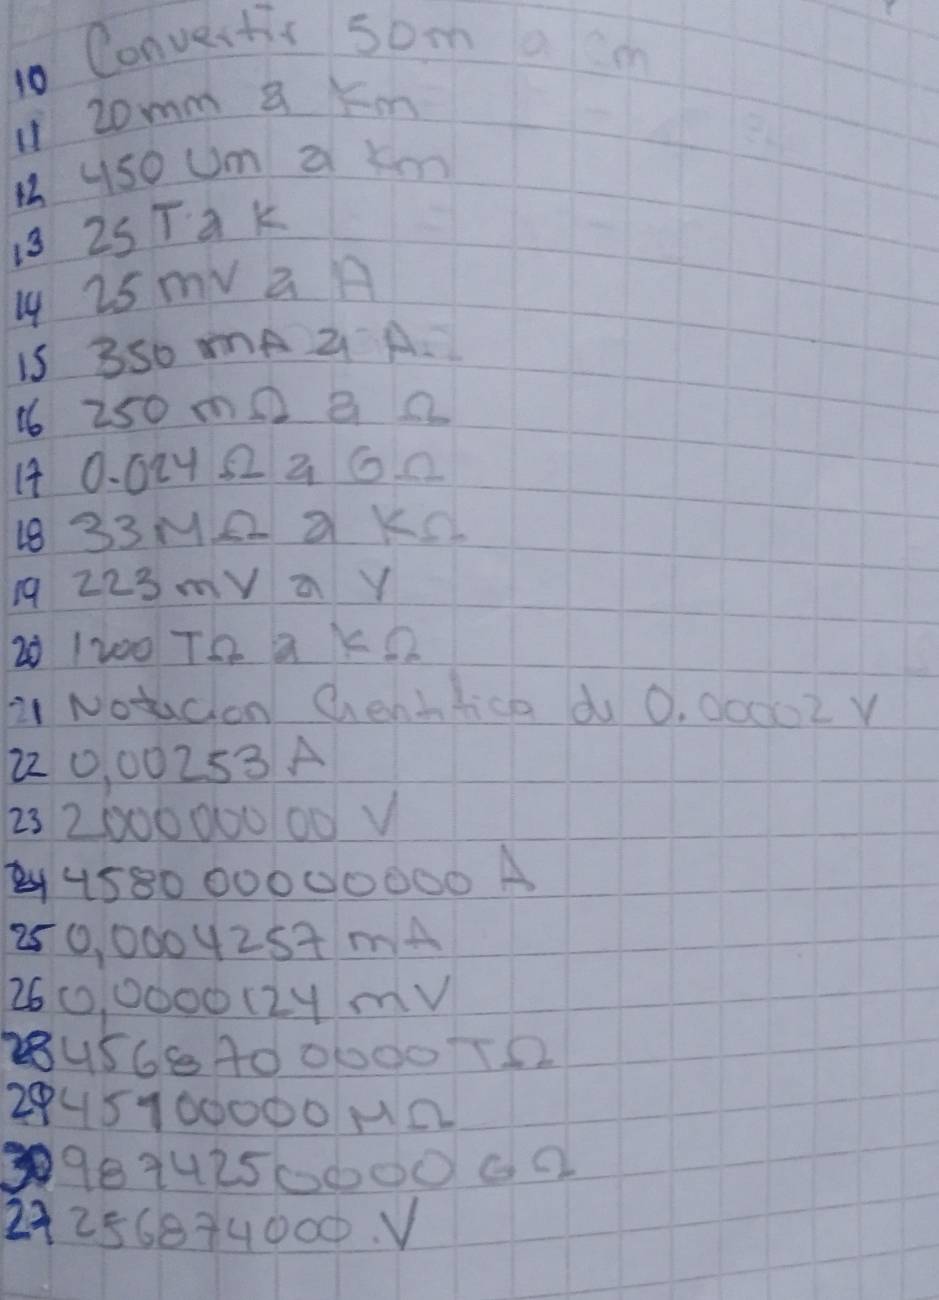 10 Convertir 50m a cm
11 20mm a Km
12 450 Um a Km
13 25 T a K
14 25 mV a A
15 350 mA a A.
16 250 mΩ a Ω
17 0.024 Ω a GΩ
18 33 MΩ a KΩ
19 223 mV a V
20 1200 TΩ a KΩ
21 Notacion Cientifica de 0.00002 V
22 0,00253 A
23 200000000 V
24 4580 00000000 A
25 0,0004257 mA
26 0,0000124 mV
28 4568700000 TΩ
29 45900000 MΩ
30 98742500000 GΩ
27 256874000.V